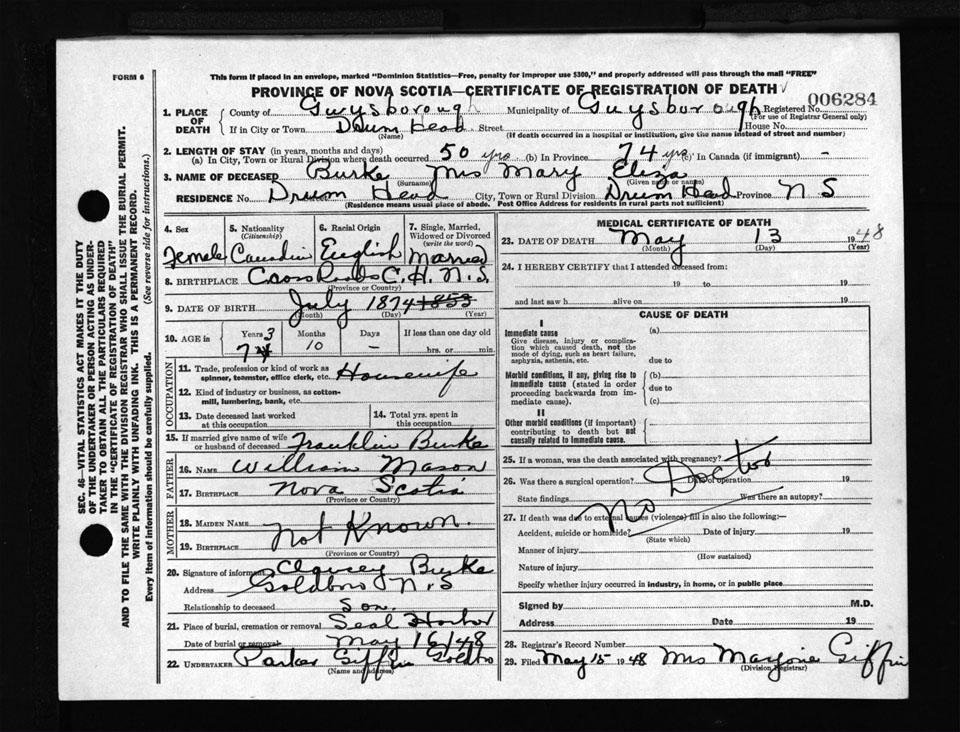 FORM 6
This form if placed in an envelope, marked "Dominion Statistics—Free, penalty for improper use $300," and properly addressed will pass through the mail "FREE"
PROVINCE OF NOVA SCOTIA—CERTIFICATE OF REGISTRATION OF DEATH
006284
1. PLACE OF DEATH
County of Guysborough Municipality of Guysborough Registered No.
(For use of Registrar General only)
If in City or Town Drum Head Street House No.
(Name) (If death occurred in a hospital or institution, give the name instead of street and number)
2. LENGTH OF STAY (in years, months and days)
(a) In City, Town or Rural Division where death occurred 50 yrs (b) In Province 74 yrs (c) In Canada (if immigrant) -
3. NAME OF DECEASED Burke Mrs Mary Eliza
(Surname) (Given name or names)
RESIDENCE No. Drum Head City, Town or Rural Division Drum Head Province N S
(Residence means usual place of abode. Post Office Address for residents in rural parts not sufficient)
4. Sex
5. Nationality (Citizenship)
6. Racial Origin
7. Single, Married, Widowed or Divorced (write the word)
Female Canadian English Married
8. BIRTHPLACE Cross Roads C. H. N. S.
(Province or Country)
9. DATE OF BIRTH July 1874 1853
(Month) (Day) (Year)
10. AGE in
Years Months Days If less than one day old
73 10 - hrs. or min.
OCCUPATION
11. Trade, profession or kind of work as spinner, teamster, office clerk, etc. Housewife
12. Kind of industry or business, as cotton-mill, lumbering, bank, etc.
13. Date deceased last worked at this occupation
14. Total yrs. spent in this occupation
15. If married give name of wife or husband of deceased Franklin Burke
FATHER
16. NAME William Mason
17. BIRTHPLACE Nova Scotia
(Province or County)
MOTHER
18. MAIDEN NAME
Not Known.
19. BIRTHPLACE
(Province or Country)
20. Signature of informant Clavcey Burke
Address Goldboro N.S
Relationship to deceased Son.
21. Place of burial, cremation or removal Seal Harbor
Date of burial or removal May 16/48
22. UNDERTAKER Parker Giffin Goldbro
(Name and address)
MEDICAL CERTIFICATE OF DEATH
23. DATE OF DEATH May 13 1948
(Month) (Day) (Year)
24. I HEREBY CERTIFY that I attended deceased from:
19 to 19
and last saw h alive on 19
CAUSE OF DEATH
I
Immediate cause
Give disease, injury or complication which caused death, not the mode of dying, such as heart failure, asphyxia, asthenia, etc.
(a)
due to
Morbid conditions, if any, giving rise to immediate cause (stated in order proceeding backwards from immediate cause).
(b)
due to
(c)
II
Other morbid conditions (if important) contributing to death but not causally related to immediate cause.
25. If a woman, was the death associated with pregnancy?
26. Was there a surgical operation? Date of operation 19
State findings Was there an autopsy?
No Doctor
27. If death was due to external causes (violence) fill in also the following:—
Accident, suicide or homicide? Date of injury 19
(State which)
Manner of injury
(How sustained)
Nature of injury
Specify whether injury occurred in industry, in home, or in public place
Signed by M.D.
Address Date 19
28. Registrar's Record Number
29. Filed May 15 1948 Mrs Marjorie Giffin
(Division Registrar)
SEC. 46—VITAL STATISTICS ACT MAKES IT THE DUTY
OF THE UNDERTAKER OR PERSON ACTING AS UNDERTAKER
TO OBTAIN ALL THE PARTICULARS REQUIRED
IN THE "CERTIFICATE OF REGISTRATION OF DEATH"
AND TO FILE THE SAME WITH THE DIVISION REGISTRAR WHO SHALL ISSUE THE BURIAL PERMIT.
WRITE PLAINLY WITH UNFADING INK. THIS IS A PERMANENT RECORD.
Every item of information should be carefully supplied. (See reverse side for instructions.)